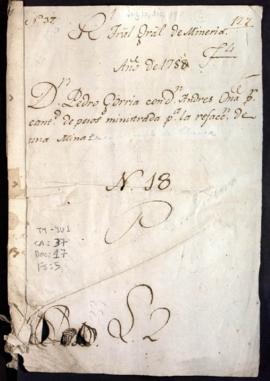 Nº 37
Rl Trial Gral de Minería
Año de 1758
Dn Pedro Gorria con dn Andres pr
cantd de pesos ministrada pa la refacn de
una Mina
N. 18
TM-JU1
CA: 37
DOC: 17
FS: 5